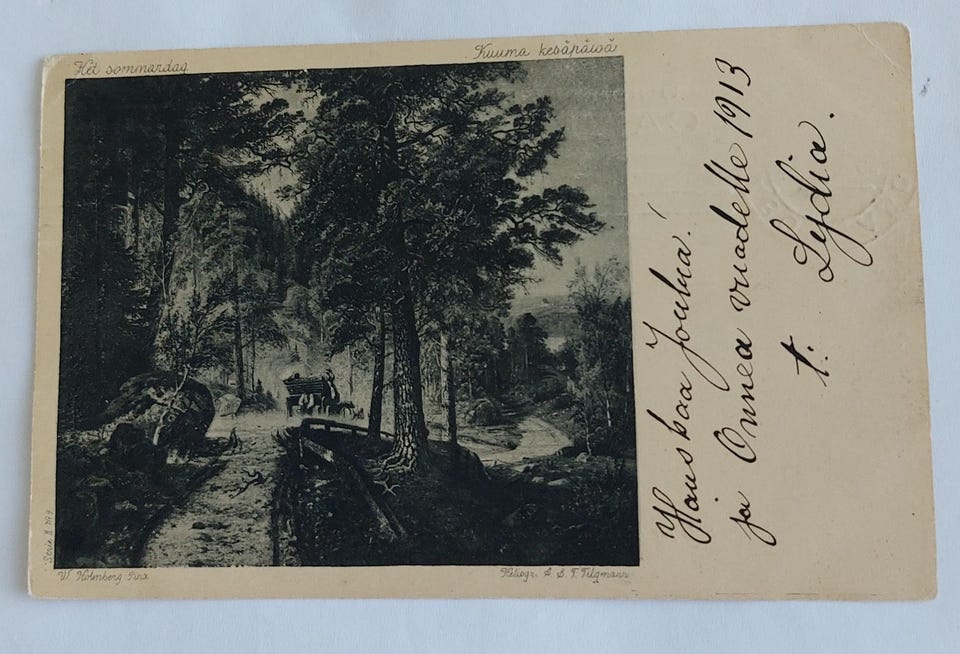 Het sommardag
Kuuma kesäpäivä
Serie II Nº 9
W. Holmberg Pinx
Heliogr. A. B. F. Tilgmann
Hauskaa Joulua!
ja Onnea vuodelle 1913
t: Lydia.